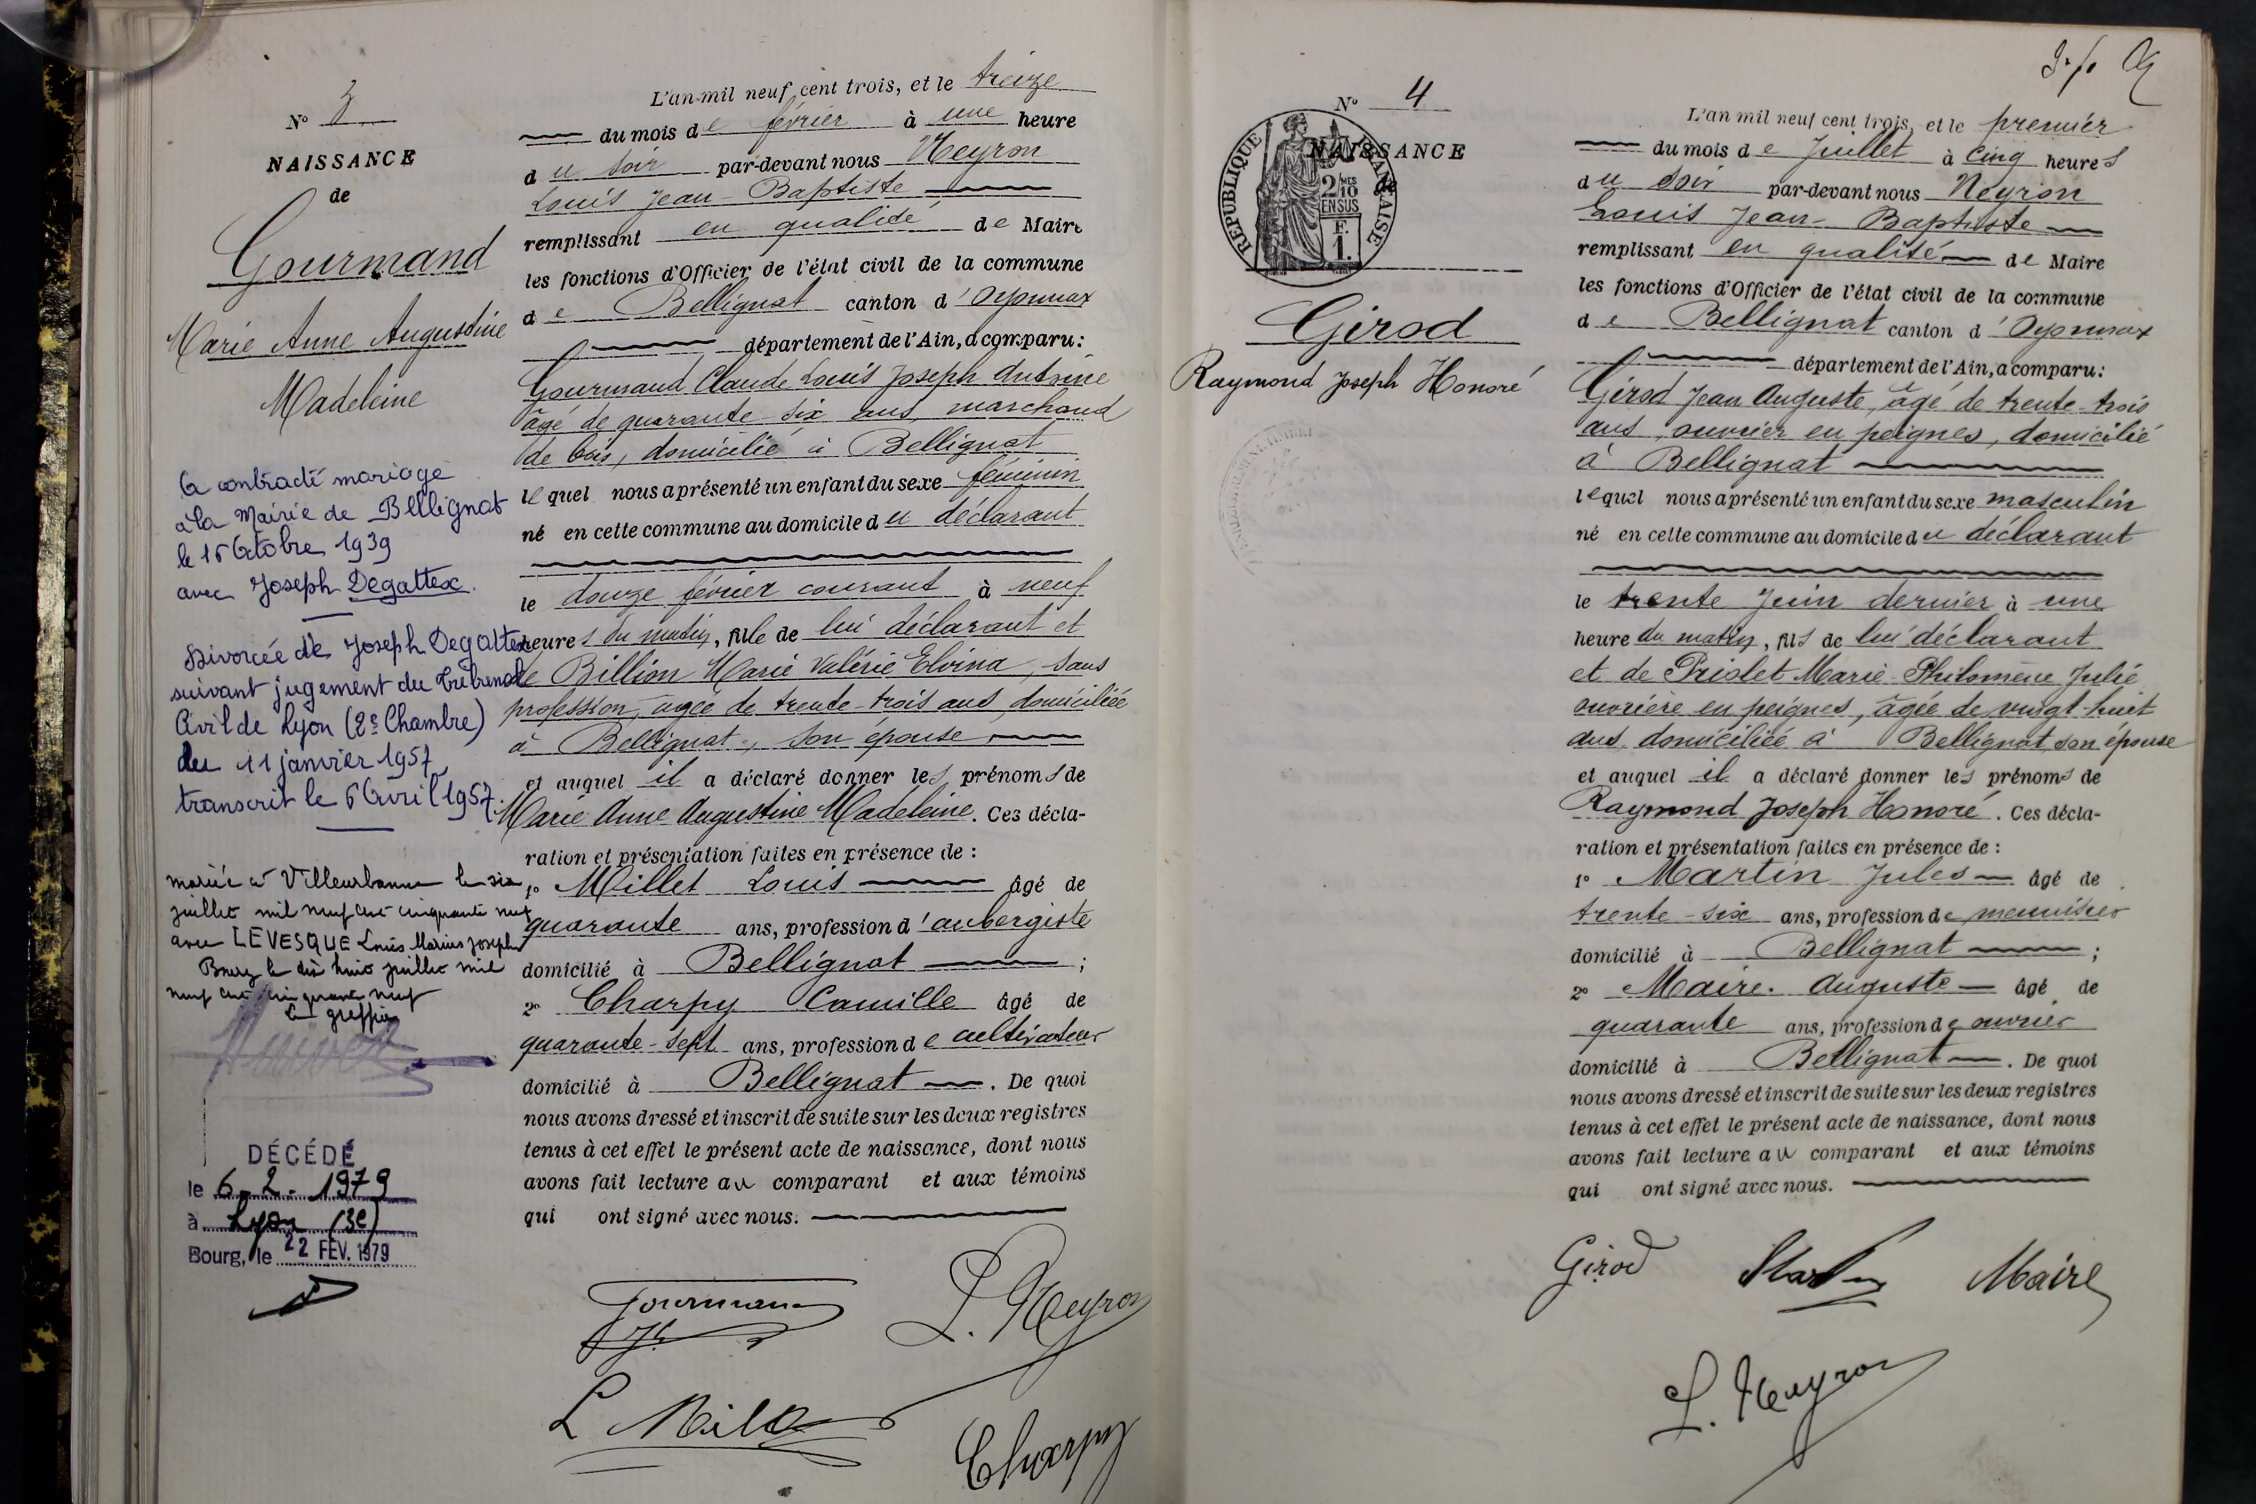 N° 3
NAISSANCE
de
Gourmand
Marie Anne Augustine
Madeleine
a contracté mariage
à la Mairie de Bellignat
le 16 Octobre 1939
avec Joseph Degattex.
Divorcée de Joseph Degattex
suivant jugement du tribunal
Civil de Lyon (2e Chambre)
du 11 janvier 1957
transcrit le 6 Avril 1957.
mariée à Villeurbanne le six
juillet mil neuf cent cinquante neuf
avec LEVESQUE Louis Marius Joseph
Bourg le dix huit juillet mil
neuf cent cinquante neuf
Le greffier
DÉCÉDÉ
le 6.2.1979
à Lyon (3e)
Bourg, le 22 FEV. 1979
L'an mil neuf cent trois, et le treize
du mois de février à une heure
du soir par-devant nous Neyron
Louis Jean-Baptiste
remplissant en qualité de Maire
les fonctions d'Officier de l'état civil de la commune
de Bellignat canton d'Oyonnax
département de l'Ain, a comparu:
Gourmand Claude Louis Joseph Antoine
âgé de quarante-six ans, marchand
de bois, domicilié à Bellignat
lequel nous a présenté un enfant du sexe féminin
né en cette commune au domicile du déclarant
le douze février courant à neuf
heures du matin, fille de lui déclarant et
de Billion Marie Valérie Elvina, sans
profession, âgée de trente-trois ans, domiciliée
à Bellignat, son épouse
et auquel il a déclaré donner les prénoms de
Marie Anne Augustine Madeleine. Ces décla-
ration et présentation faites en présence de :
1° Millet Louis âgé de
quarante ans, profession d'aubergiste
domicilié à Bellignat ;
2° Charpy Camille âgé de
quarante-sept ans, profession de cultivateur
domicilié à Bellignat. De quoi
nous avons dressé et inscrit de suite sur les deux registres
tenus à cet effet le présent acte de naissance, dont nous
avons fait lecture au comparant et aux témoins
qui ont signé avec nous.
Gourmand
L. Neyron
L Millet
Charpy
N° 4
NAISSANCE
de
RÉPUBLIQUE FRANÇAISE
2/10 MES
EN SUS
F.
1.
Girod
Raymond Joseph Honoré
L'an mil neuf cent trois, et le premier
du mois de Juillet à cinq heures
du soir par-devant nous Neyron
Louis Jean-Baptiste
remplissant en qualité de Maire
les fonctions d'Officier de l'état civil de la commune
de Bellignat canton d'Oyonnax
département de l'Ain, a comparu:
Girod Jean Auguste, âgé de trente-trois
ans, ouvrier en peignes, domicilié
à Bellignat
lequel nous a présenté un enfant du sexe masculin
né en cette commune au domicile du déclarant
le trente Juin dernier à une
heure du matin, fils de lui déclarant
et de Priolet Marie-Philomène Julie
ouvrière en peignes, âgée de vingt-huit
ans domiciliée à Bellignat son épouse
et auquel il a déclaré donner les prénoms de
Raymond Joseph Honoré. Ces décla-
ration et présentation faites en présence de :
1° Martin Jules âgé de
trente-six ans, profession de menuisier
domicilié à Bellignat ;
2° Maire Auguste âgé de
quarante ans, profession d'ouvrier
domicilié à Bellignat. De quoi
nous avons dressé et inscrit de suite sur les deux registres
tenus à cet effet le présent acte de naissance, dont nous
avons fait lecture au comparant et aux témoins
qui ont signé avec nous.
Girod Martin Maire
L. Neyron